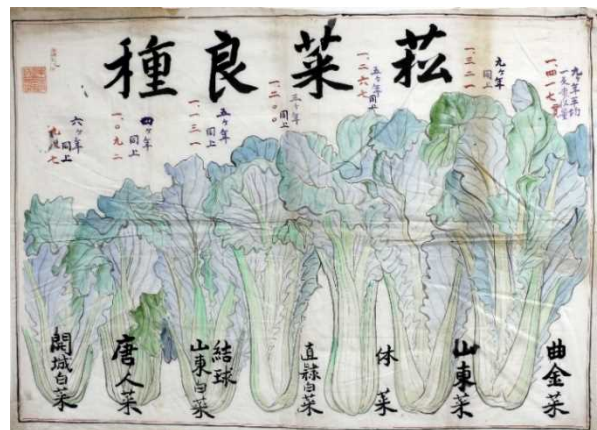 菘菜良種
九ヶ年平均
一、四一七貫
九ヶ年
同上
一、三二一
五ヶ年
同上
一、二六七
三ヶ年
同上
一、二〇〇
五ヶ年
同上
一、一三一
四ヶ年
同上
一、〇九二
六ヶ年
同上
曲金菜
山東菜
体菜
直隷白菜
結球
山東白菜
唐人菜
開城白菜